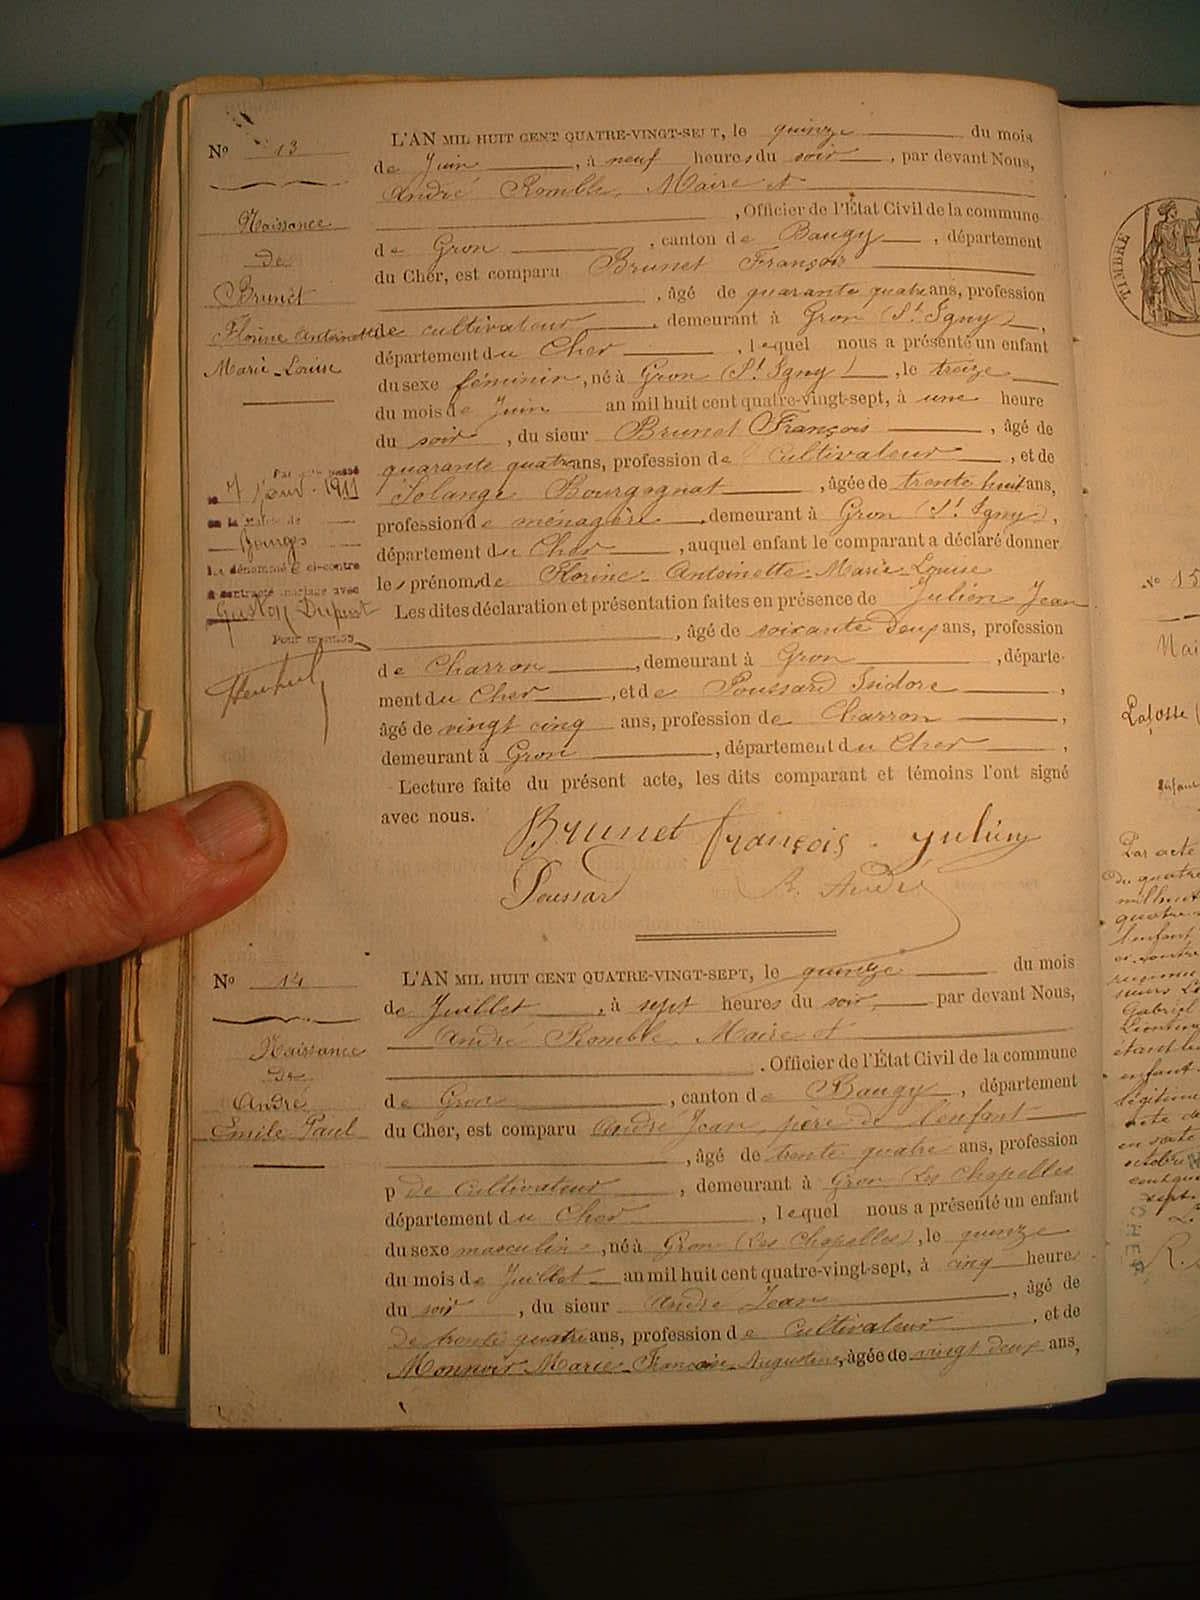 N° 13
Naissance
de
Brunet
Florine Antoinette
Marie-Louise
L'AN MIL HUIT CENT QUATRE-VINGT-SEPT, le quinze du mois
de Juin, à neuf heures du soir, par devant Nous,
André Romble, Maire et
, Officier de l'État Civil de la commune
de Gron, canton de Baugy, département
du Cher, est comparu Brunet François
, âgé de quarante quatre ans, profession
de cultivateur, demeurant à Gron (St Igny),
département du Cher, lequel nous a présenté un enfant
du sexe féminin, né à Gron (St Igny), le treize
du mois de Juin an mil huit cent quatre-vingt-sept, à une heure
du soir, du sieur Brunet François, âgé de
quarante quatre ans, profession de cultivateur, et de
Solange Bourgognat, âgée de trente huit ans,
profession de ménagère, demeurant à Gron (St Igny),
département du Cher, auquel enfant le comparant a déclaré donner
les prénoms de Florine-Antoinette-Marie-Louise
Les dites déclaration et présentation faites en présence de Julien Jean
, âgé de soixante deux ans, profession
de Charron, demeurant à Gron, départe-
ment du Cher, et de Poussard Isidore,
âgé de vingt cinq ans, profession de Charron,
demeurant à Gron, département du Cher,
Lecture faite du présent acte, les dits comparant et témoins l'ont signé
avec nous.
Brunet françois Julien
Poussard R. André
Par acte passé
le 7 1911
en la mairie de
Bourges
dénommé e ci-contre
a contracté mariage avec
Gaston
Pour mention
N° 14
Naissance
de
André
Emile Paul
L'AN MIL HUIT CENT QUATRE-VINGT-SEPT, le quinze du mois
de Juillet, à sept heures du soir, par devant Nous,
André Romble, Maire et
, Officier de l'État Civil de la commune
de Gron, canton de Baugy, département
du Cher, est comparu André Jean, père de l'enfant
, âgé de trente quatre ans, profession
p de Cultivateur, demeurant à Gron Les Chapelles
département du Cher, lequel nous a présenté un enfant
du sexe masculin, né à Gron (Les Chapelles), le quinze
du mois de Juillet an mil huit cent quatre-vingt-sept, à cinq heures
du soir, du sieur André Jean, âgé de
de trente quatre ans, profession de Cultivateur, et de
Monnoir Marie-Françoise Augustine, âgée de vingt deux ans,
TIMBRE
N° 15
Lafosse
Par acte
du quatre
mil huit
quatre
l'enfant
Gabriel
enfant
légitime
acte de
octobre
CHER
R.